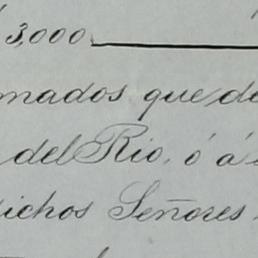 3,000
mados que de
del Rio, ó á
dichos Señores